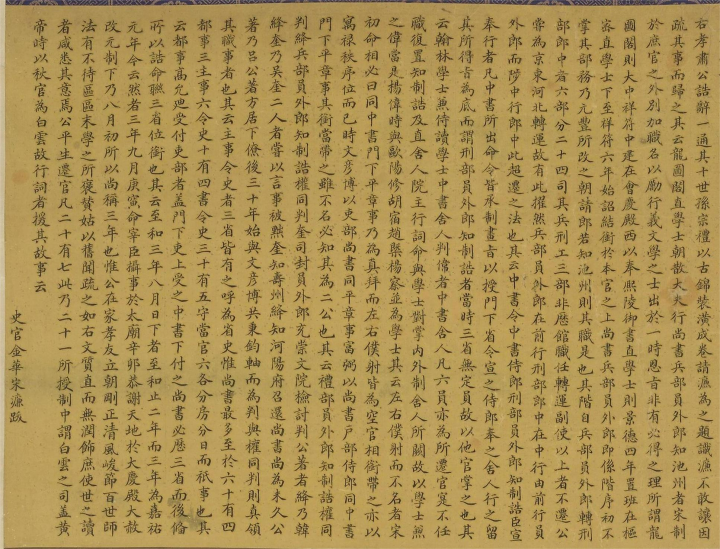 右孝肅公誥辭一通其十世孫宗禮以古錦裝潢成卷請濂為之題識濂不敢讓因
疏其事而歸之其云龍圖閣直學士朝散大夫行尚書兵部員外郎知池州者宋制
於庶官之外別加職名以勵行義文學之士出於一時恩旨非有必得之理所謂龍
圖閣則大中祥符中建在會慶殿西以奉熙陵御書直學士則景德四年置班在樞
密直學士下至祥符六年始詔結銜於本官之上尚書兵部員外郎係階序初不
掌其部務乃元豐所改之朝請郎若知池州則其職是也其階自兵部員外郎轉刑
部郎中者六部分二十四司其兵刑工三部非歷館職任轉運副使以上者不遷公
嘗為京東河北轉運故有此擢然兵部員外郎在前行刑部郎中在中行由前行員
外郎而陟中行郎中此超遷之法也其云中書令中書侍郎刑部員外郎知制誥臣宣
奉行者凡中書所出命令皆承制畫旨以授門下省令宣之侍郎奉之舍人行之留
其所得旨為底而謂刑部員外郎知制誥者當時三省無定員故以他官掌之也其
云翰林學士兼侍讀學士中書舍人判偉者中書舍人凡六員亦為所遷官寔不任
職復置知制誥及直舍人院主行詞命與學士對掌內外制舍人所闕故以學士兼
之偉當是楊偉時與歐陽修胡宿趙槩楊察並為學士其云左右僕射而不名者宋
初命相必曰同中書門下平章事乃為真拜而左右僕射皆為空官相銜帶之亦以
寓祿秩序位而已時文彥博以吏部尚書同平章事富弼以尚書戶部侍郎同中書
門下平章事其銜當帶之雖不名必知其為二公也其云禮部員外郎知制誥權同
判絳兵部員外郎知制誥權同判奎司封員外郎充崇文院檢討判公著者絳乃韓
絳奎乃吳奎二人者嘗以言事被黜奎知壽州絳知河陽府召還尚書尚為未久公
著乃呂公著方居下僚後三十年始與文彥博共秉鈞軸而為判與權同判則真領
其職事者也其云主事令史者三省皆有之呼為省史惟尚書最多至於六十有四
都事三主事六令史十有四書令史三十有五守當官六各分房分日而祇事也其
云都事高允迪受付吏部者蓋門下吏上受之中書下付之尚書必歷三省而後備
所以誥命聯三省位銜也其云至和三年八月日下者至和止二年而三年為嘉祐
元年今云然者三年九月庚寅命宰臣攝事於太廟辛卯恭謝天地於大慶殿大赦
改元制下乃八月初所以尚稱三年也惟公在家孝友立朝剛正清風峻節百世師
法有不待區區末學之所褒贊姑以舊聞疏之如右文質直而無潤飾庶使世之讀
者咸悉其意焉公平生遷官凡二十有七此乃二十一所授制中謂白雲之司蓋黃
帝時以秋官為白雲故行詞者援其故事云
史官金華宋濂跋